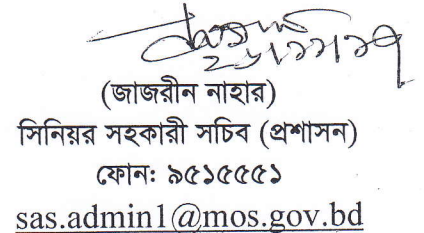 ২৮/১১/১৭
(জাজরীন নাহার)
সিনিয়র সহকারী সচিব (প্রশাসন)
ফোন: ৯৫১৫৫৫১
sas.admin1@mos.gov.bd